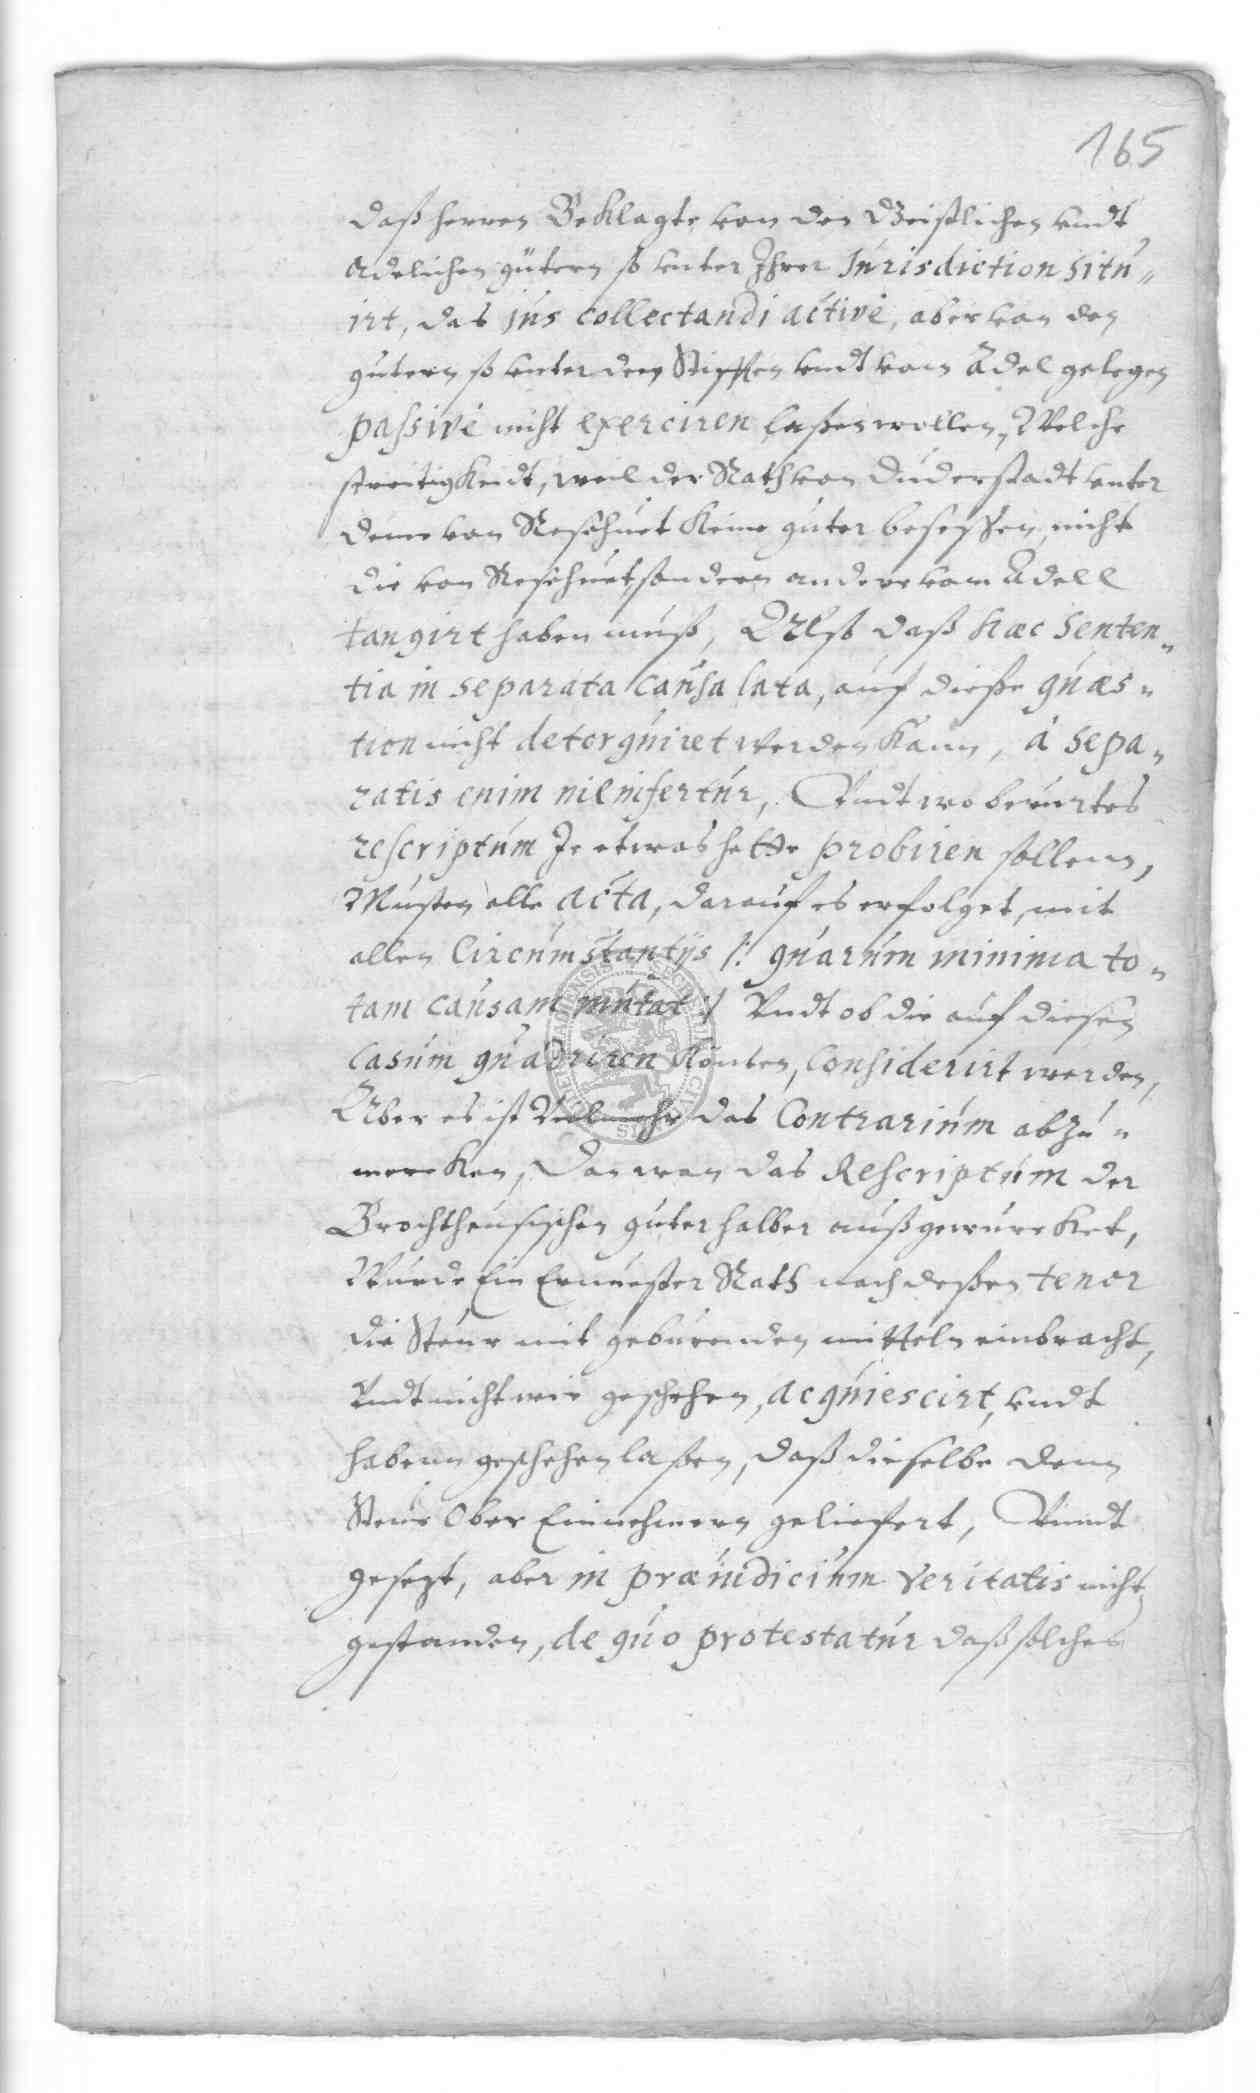 165
daß herren Beklagte von den Geistlichen vndt
Adelichen gütern so vnter Ihrer Jurisdiction situ„
irt, das jus collectandi active, aber von den
gutern so vnter den Stifften vndt vom Adel gelegen
passive nicht exerciren laßen wollen, Welche
streitigkeidt, weil der Rath von Duderstadt vnter
denn von keine guter besessen, nicht
die von sondern andere vom Adell
tangirt haben muß, Also daß hæc senten„
tia in separata causa lata, auf dieße quæs„
tion nicht detorquiret werden kann, à sepa„
ratis enim nil infertur, Vndt wo berürtes
rescriptum Je etwas hette probiren sollenn,
Musten alle acta, darauf es erfolget, mit
allen Circumstantijs /: quarum minima to„
tam causam mutat :/ Vndt ob die auf diesen
casum quadriren könten, Considerirt werden,
Aber es ist Vielmehr das Contrarium abzu„
mercken, Dan wan das Rescriptum der
Brochtheusischen guter halber außgewürcket,
Würde Ein Ernuester Rath nach deßen tenor
die Steur mit gebürenden mitteln einbracht,
Vndt nicht wie geschehen, acquiescirt, vndt
habenn geschehen laßen, daß dieselbe denn
Steur Ober Einnehmern geliefert, Vnndt
gesezt, aber in præiudicium veritatis nicht
gestanden, de quo protestatur daß solches